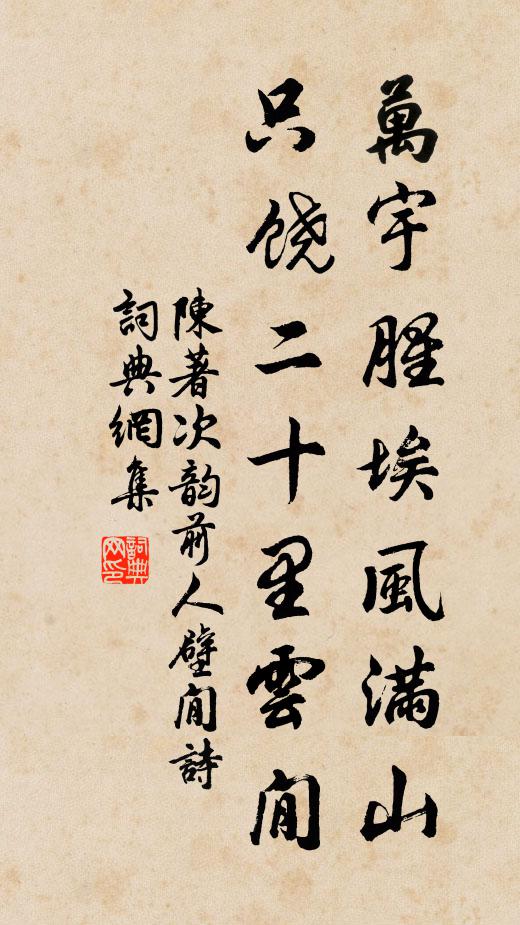 萬宇腥埃風滿山
只饒二十里雲閒
陳著次韵前人壁閒詩
詞典網集
詞典网印